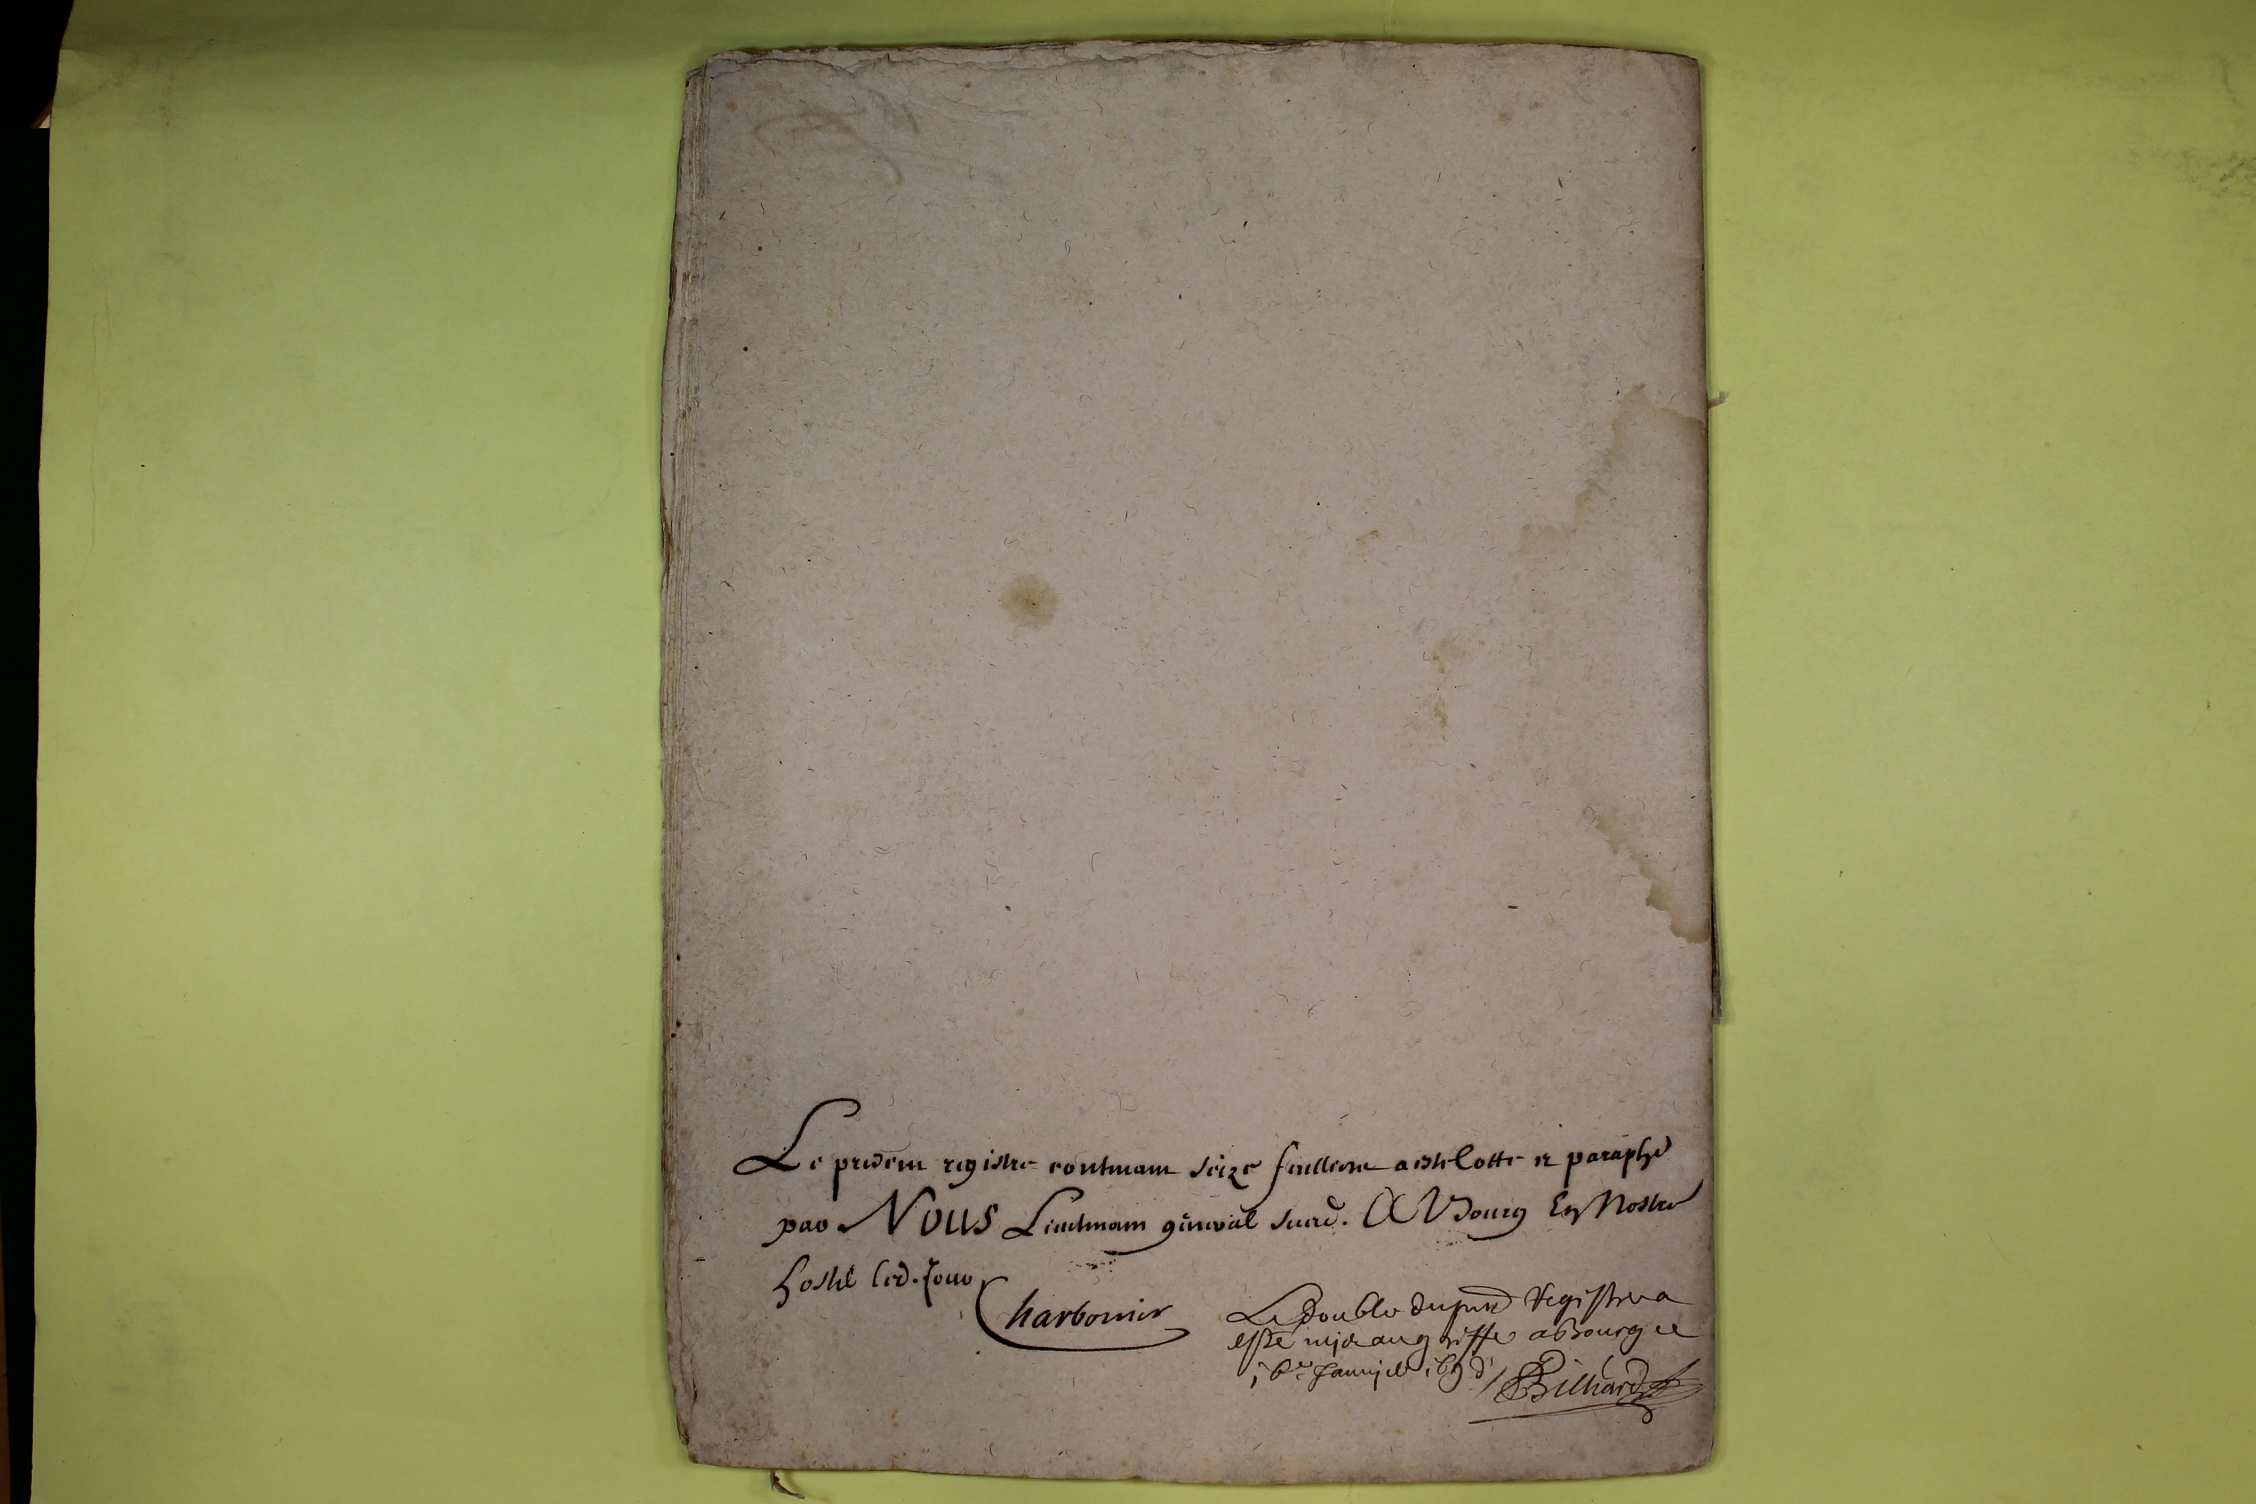 Le present registre contenant seize feulletz a esté Cotté et paraphé
par NOUS Lieutenant general susd. A Bourg En Nostre
hostel led. Jour
Charbonier
Le double du pnt Registre a
esté mis au greffe a Bourg ce
Janvier
Billiard